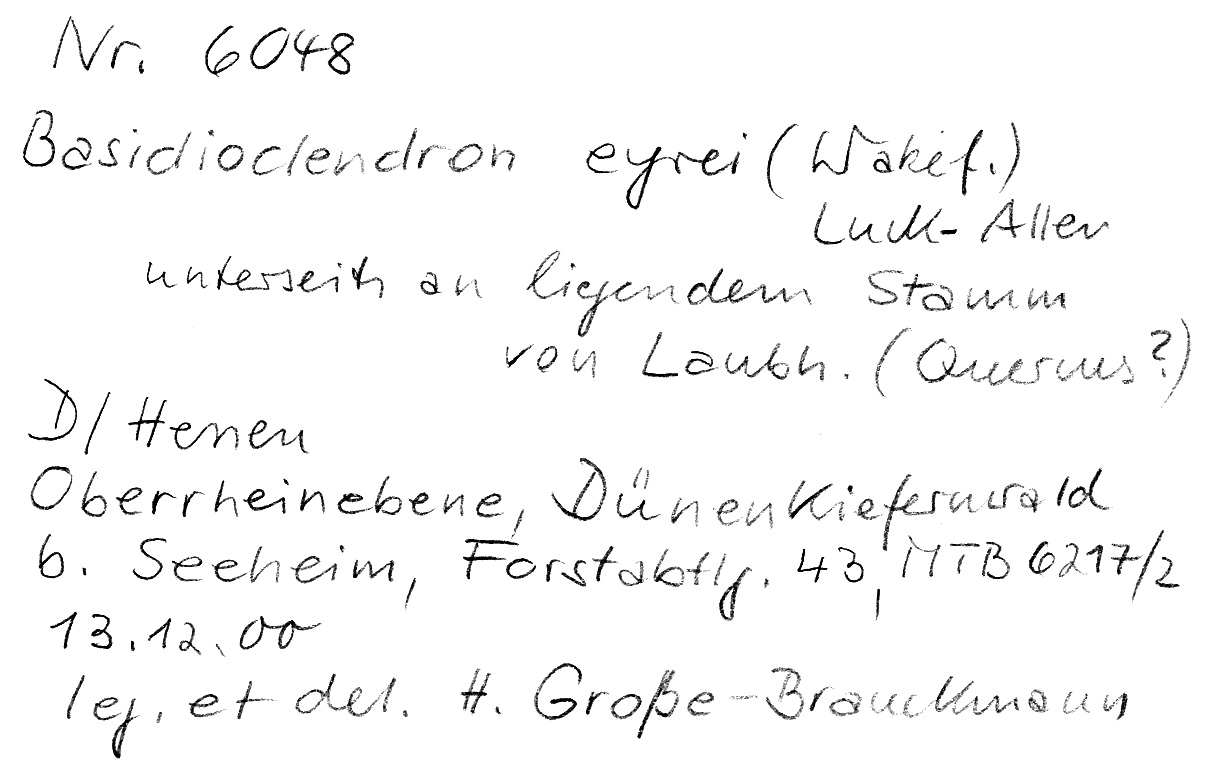 Nr. 6048
Basidiodendron eyrei (Wakef.)
Luck-Allen
unterseits an liegendem Stamm
von Laubh. (Quercus?)
D/ Hessen
Oberrheinebene, Dünenkiefernwald
b. Seeheim, Forstabtlg. 43, MTB 6217/2
13.12.00
leg. et det. H. Große-Brauckmann